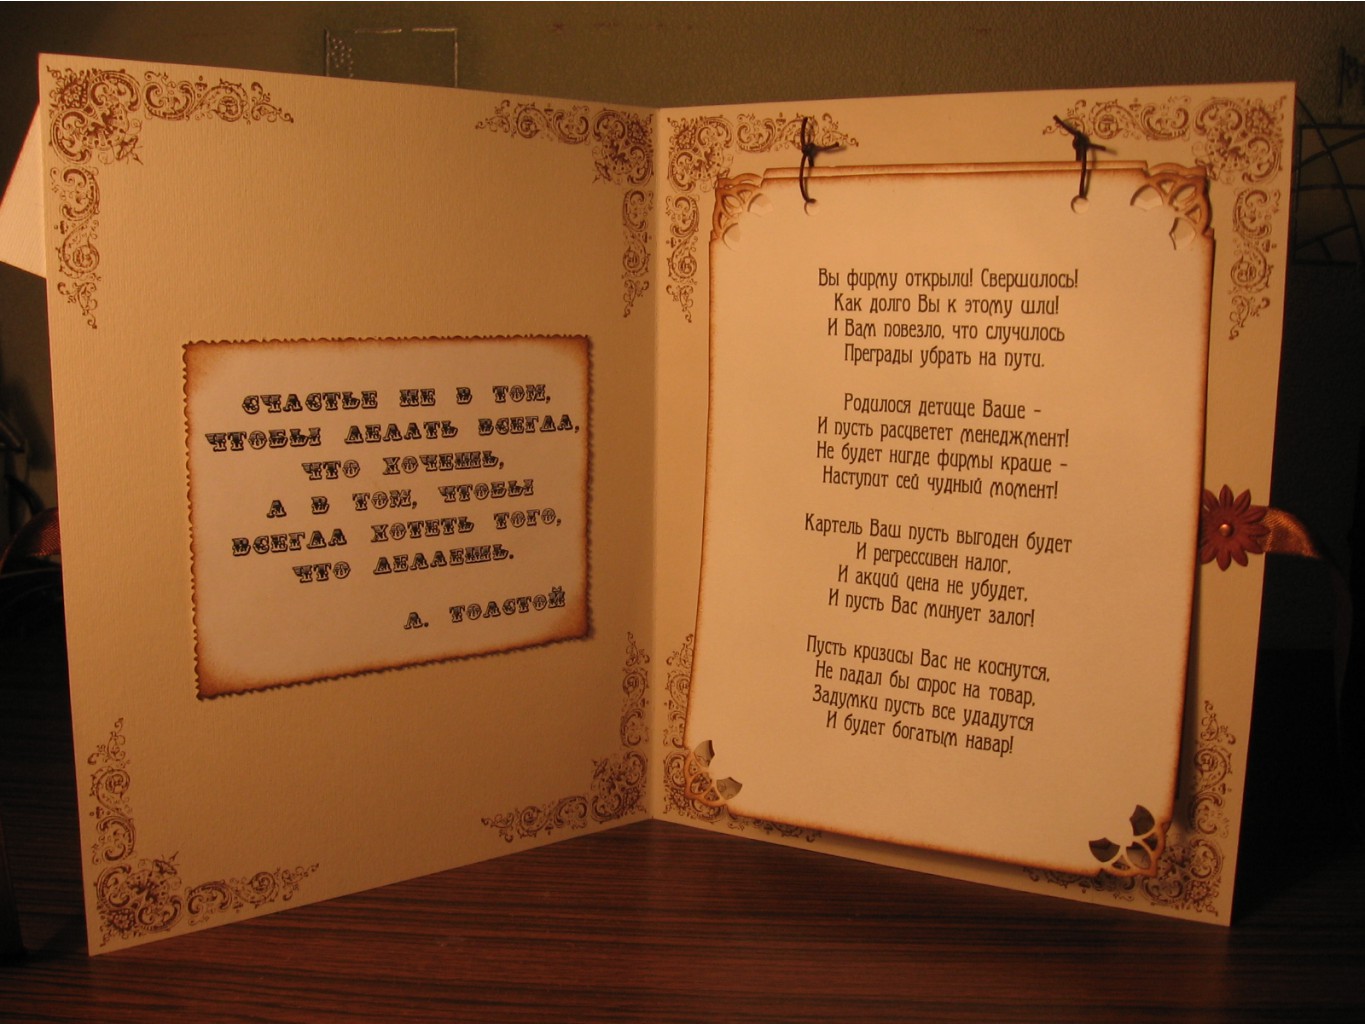 СЧАСТЬЕ НЕ В ТОМ,
ЧТОБЫ ДЕЛАТЬ ВСЕГДА,
ЧТО ХОЧЕШЬ,
А В ТОМ, ЧТОБЫ
ВСЕГДА ХОТЕТЬ ТОГО,
ЧТО ДЕЛАЕШЬ.
Л. ТОЛСТОЙ
Вы фирму открыли! Свершилось!
Как долго Вы к этому шли!
И Вам повезло, что случилось
Преграды убрать на пути.
Родилося детище Ваше –
И пусть расцветет менеджмент!
Не будет нигде фирмы краше –
Наступит сей чудный момент!
Картель Ваш пусть выгоден будет
И регрессивен налог,
И акций цена не убудет,
И пусть Вас минует залог!
Пусть кризисы Вас не коснутся,
Не падал бы спрос на товар,
Задумки пусть все удадутся
И будет богатым навар!